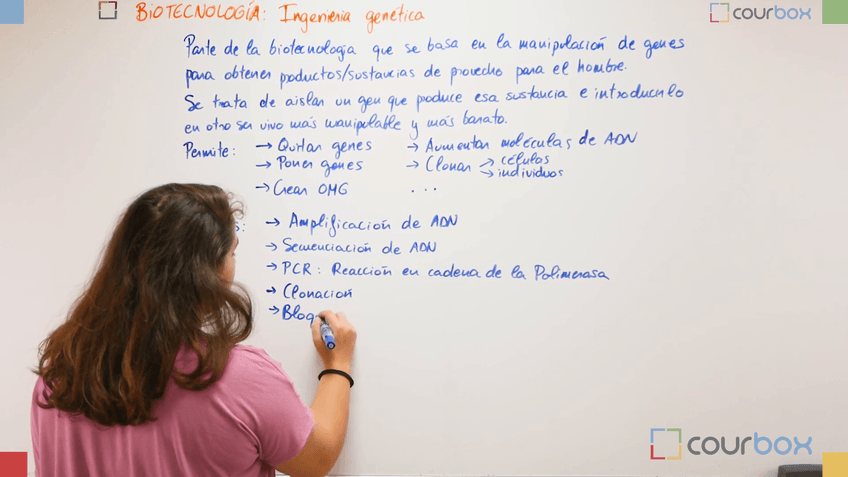 BIOTECNOLOGÍA: Ingeniería genética
courbox
Parte de la biotecnología que se basa en la manipulación de genes
para obtener productos/sustancias de provecho para el hombre.
Se trata de aislar un gen que produce esa sustancia e introducirlo
en otro ser vivo más manipulable y más barato.
Permite: → Quitar genes → Aumentar moléculas de ADN
→ Poner genes → Clonar → células
→ individuos
→ Crear OMG ...
s: → Amplificación de ADN
→ Secuenciación de ADN
→ PCR: Reacción en cadena de la Polimerasa
→ Clonación
→ Bloq
courbox